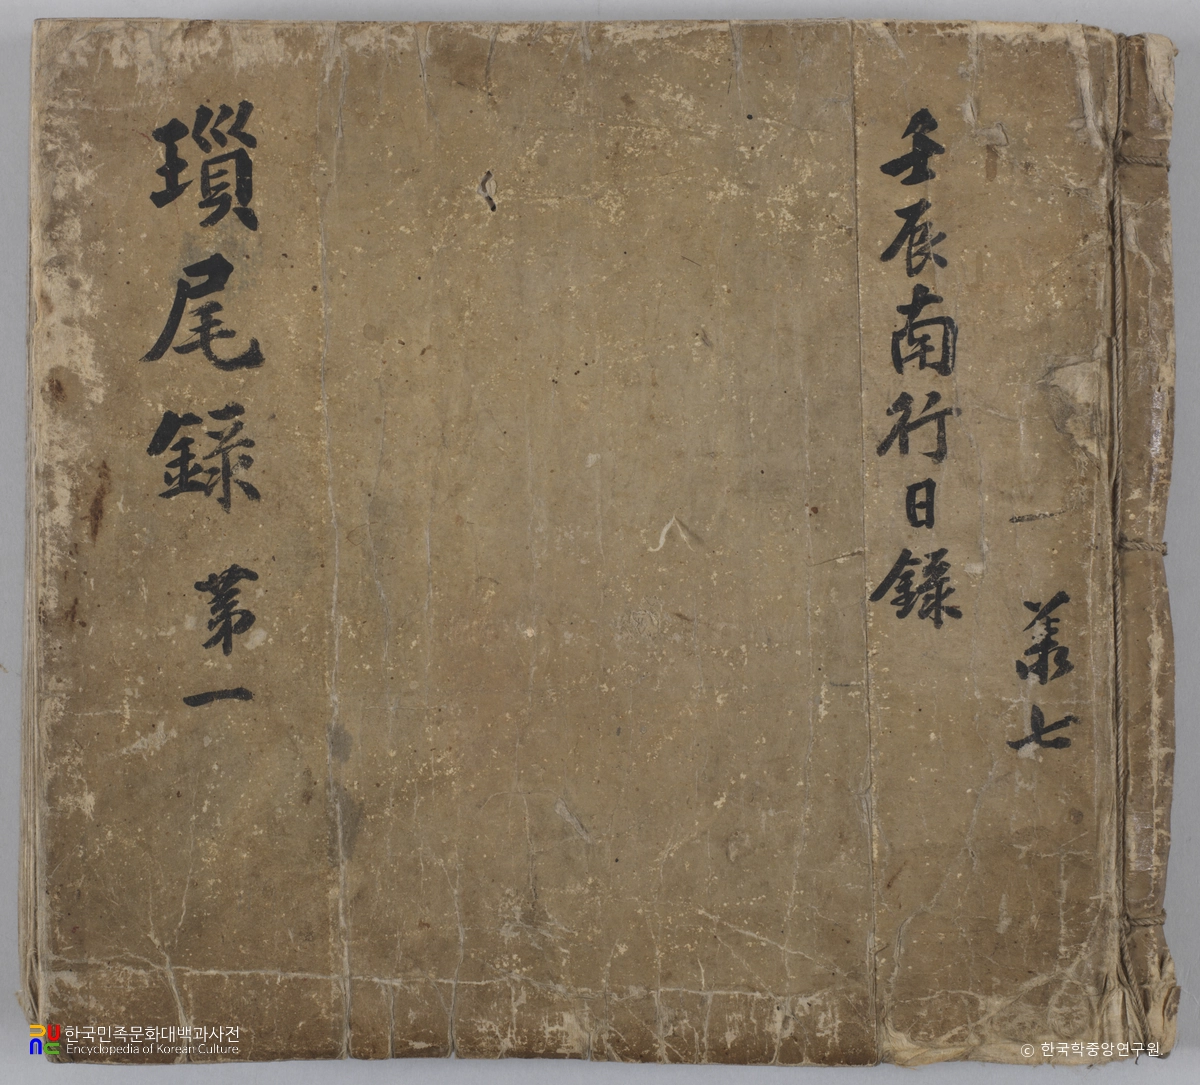 共七
壬辰南行日錄
瑣尾錄 第一
한국민족문화대백과사전
Encyclopedia of Korean Culture
ⓒ 한국학중앙연구원